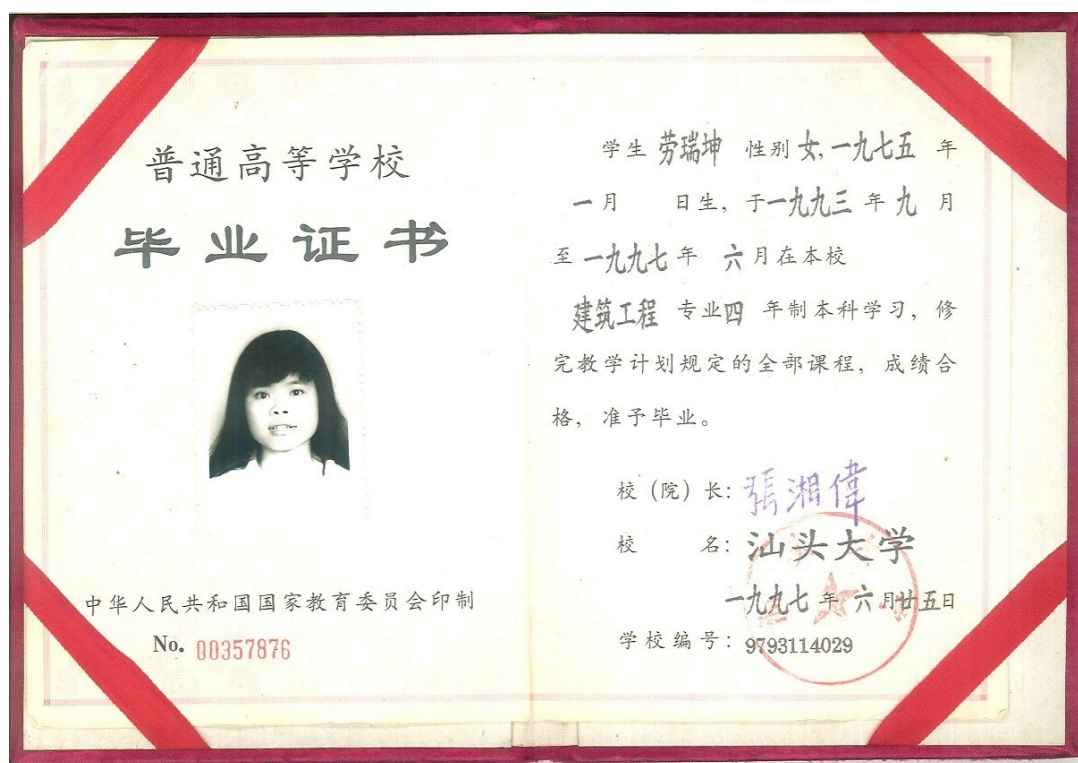 普通高等学校
毕业证书
中华人民共和国国家教育委员会印制
No. 00357876
学生 劳瑞坤 性别 女, 一九七五 年
一月 日生, 于一九九三 年 九 月
至 一九九七 年 六 月在本校
建筑工程 专业 四 年制本科学习, 修
完教学计划规定的全部课程, 成绩合
格, 准予毕业。
校(院)长: 張湘偉
校 名: 汕头大学
一九九七 年 六 月廿五日
学校编号: 9793114029